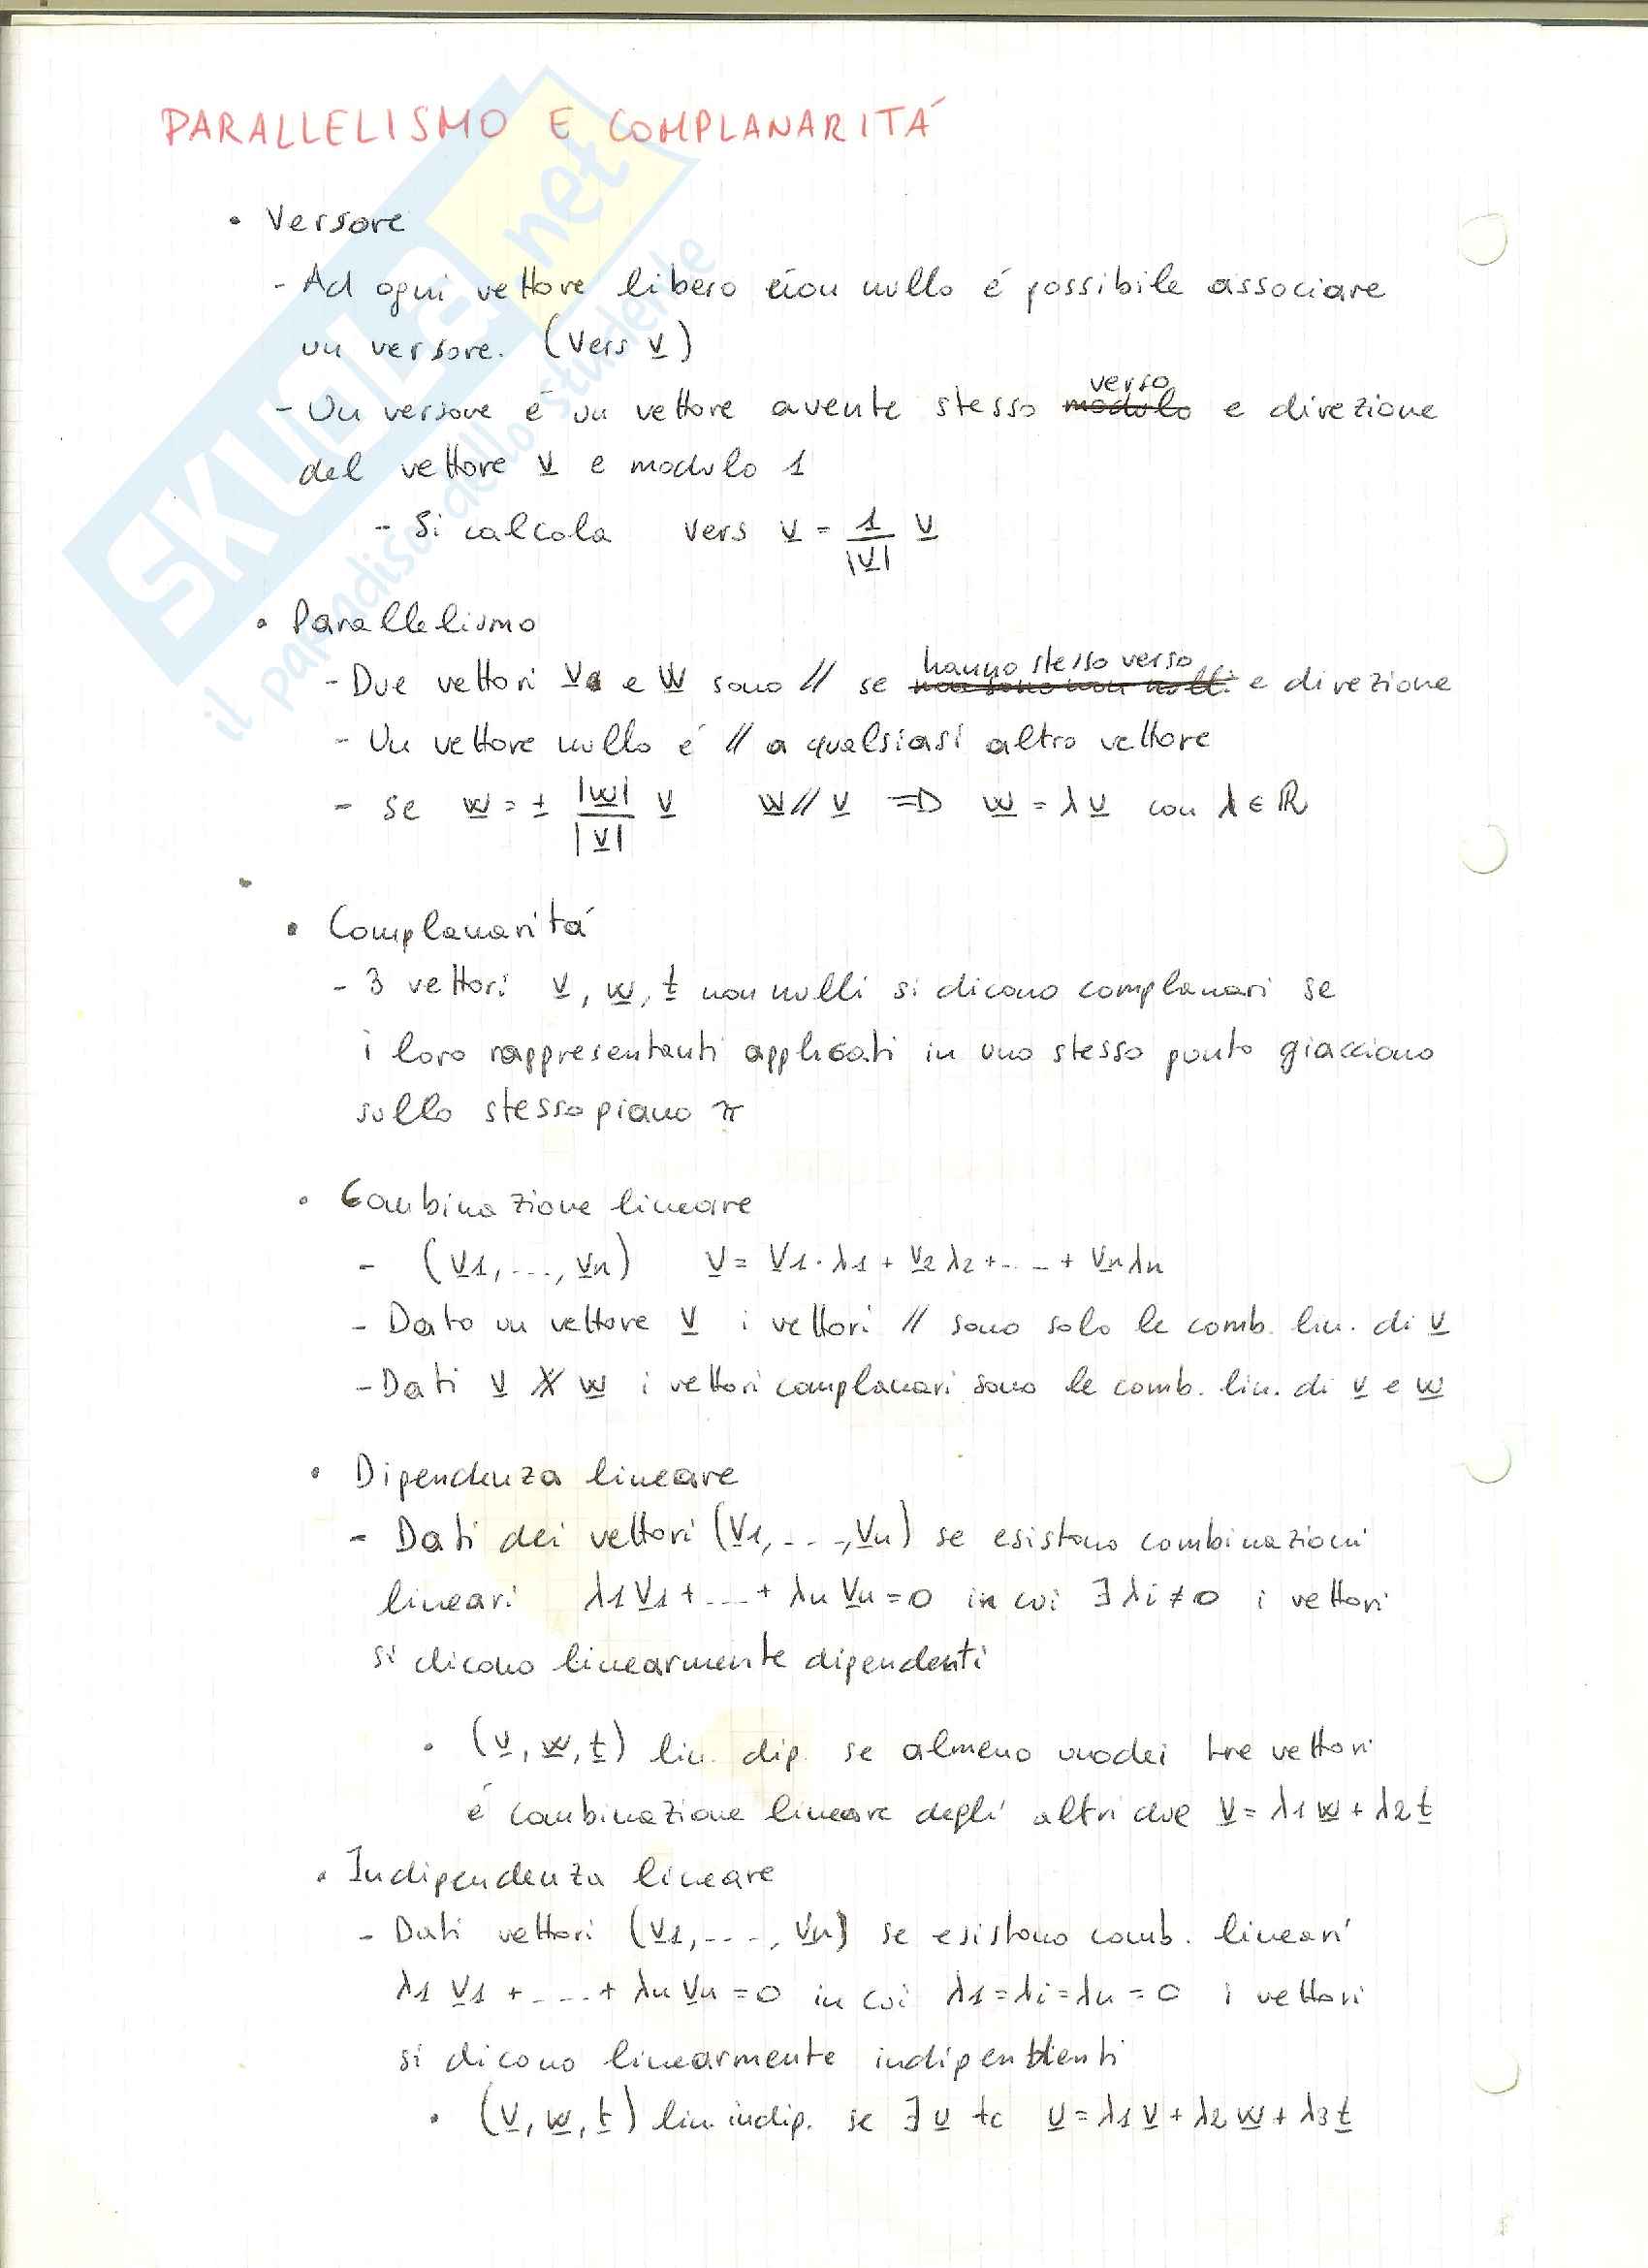 PARALLELISMO E COMPLANARITÁ
• Versore
- Ad ogni vettore libero non nullo é possibile associare
un versore. (Vers v)
verso
- Un versore é un vettore avente stesso modulo e direzione
del vettore v e modulo 1
- Si calcola vers v = 1/|v| v
• Parallelismo
hanno stesso verso
- Due vettori v e w sono // se non sono non nulli e direzione
- Un vettore nullo é // a qualsiasi altro vettore
- se w = ± |w|/|v| v w // v => w = λv con λ ∈ ℝ
• Complanaritá
- 3 vettori v, w, t non nulli si dicono complanari se
i loro rappresentanti applicati in uno stesso punto giacciono
sullo stesso piano π
• Combinazione lineare
- (v1, ..., vn) v = v1·λ1 + v2λ2 + ... + vnλn
- Dato un vettore v i vettori // sono solo le comb. lin. di v
- Dati v ∦ w i vettori complanari sono le comb. lin. di v e w
• Dipendenza lineare
- Dati dei vettori (v1, ..., vn) se esistono combinazioni
lineari λ1v1 + ... + λnvn = 0 in cui ∃ λi ≠ 0 i vettori
si dicono linearmente dipendenti
• (v, w, t) lin. dip. se almeno uno dei tre vettori
é combinazione lineare degli altri due v = λ1w + λ2t
• Indipendenza lineare
- Dati vettori (v1, ..., vn) se esistono comb. lineari
λ1v1 + ... + λnvn = 0 in cui λ1 = λi = λn = 0 i vettori
si dicono linearmente indipendenti
• (v, w, t) lin. indip. se ∃ u tc u = λ1v + λ2w + λ3t
SKUOLA.net
il paradiso dello studente